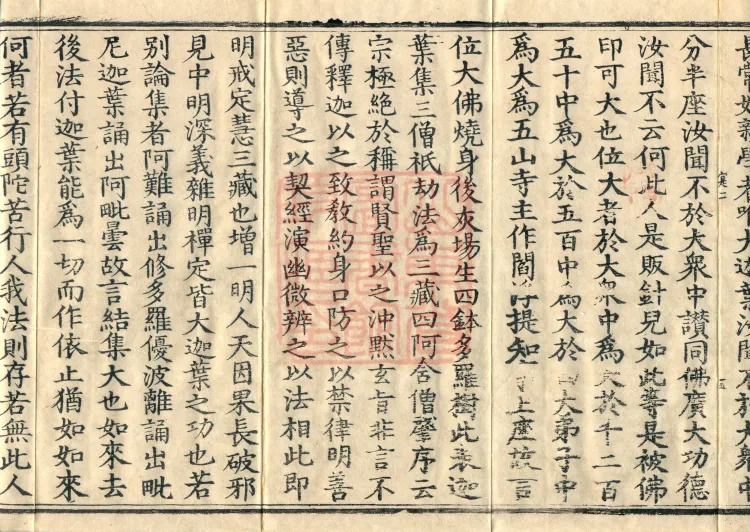 大迦葉汝聞不於大衆中
分半座汝聞不於大衆中讃同佛廣大功德
汝聞不云何此人是販針兒如此等是被佛
印可大也位大者於大衆中爲大於千二百
五十中爲大於五百中爲大於四大弟子中
爲大爲五山寺主作閻浮提知上座故言
位大佛燒身後灰場生四鉢多羅樹此表迦
葉集三僧祇劫法爲三藏四阿含僧肇序云
宗極絶於稱謂賢聖以之沖黙玄旨非言不
傳釋迦以之致敎約身口防之以禁律明善
惡則導之以契經演幽微辨之以法相此即
明戒定慧三藏也增一明人天因果長破邪
見中明深義雜明禪定皆大迦葉之功也若
別論集者阿難誦出修多羅優波離誦出毗
尼迦葉誦出阿毗曇故言結集大也如來去
後法付迦葉能爲一切而作依止猶如如來
何者若有頭陀苦行人我法則存若無此人